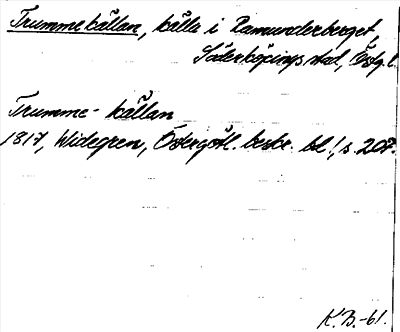 Trummekällan, källa i Ramunderberget,
Söderköpings stad, Östg.l.
Trumme-källan
1817, Widegren, Östergötl. beskr. bl!, s. 207.
K.B.-61.